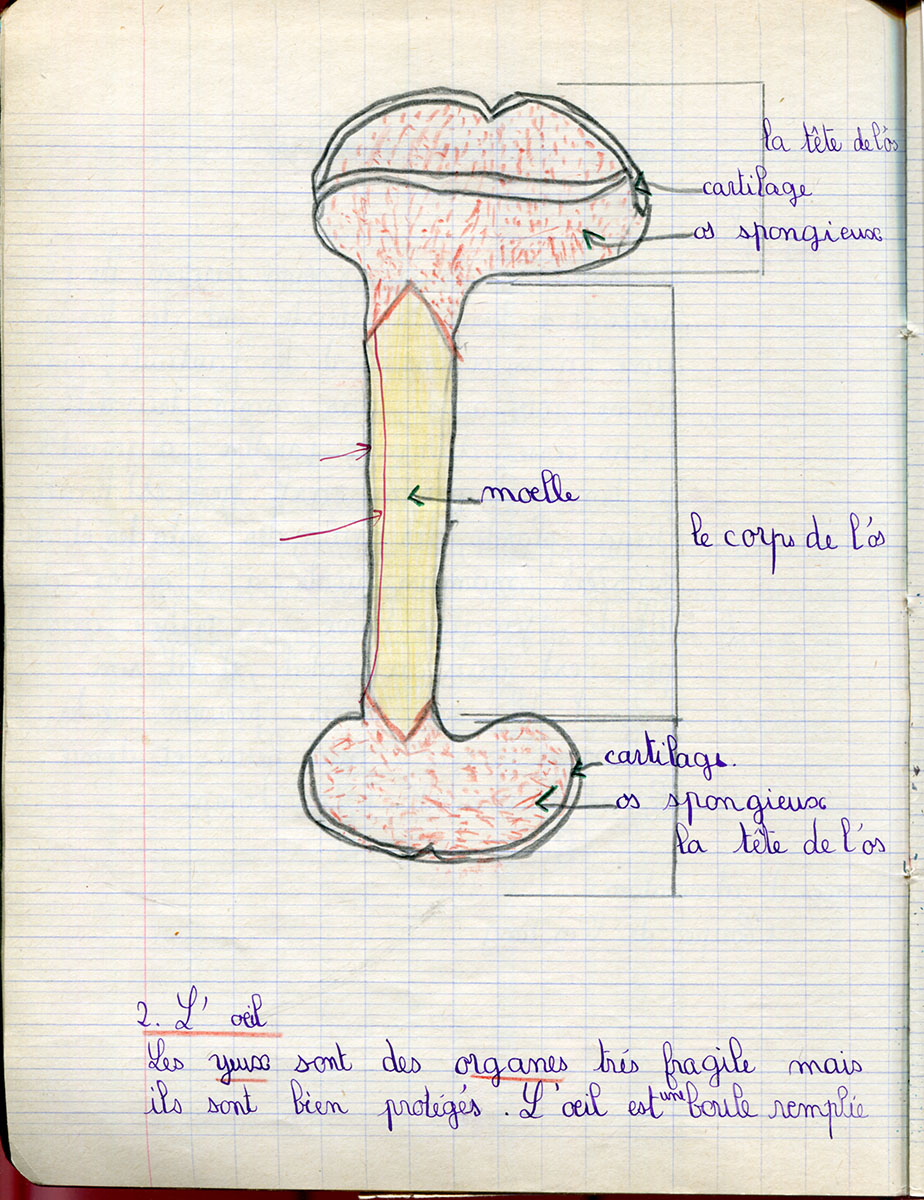 la tête de l'os
cartilage
os spongieux
moelle
le corps de l'os
cartilage.
os spongieux
la tête de l'os
2. L'oeil
Les yeux sont des organes trés fragile mais
ils sont bien protégés. L'oeil est une boule remplie